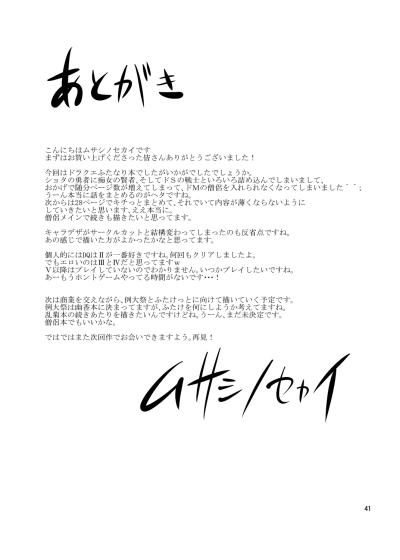 あとがき
こんにちはムサシノセカイです
まずはお買い上げくださった皆さんありがとうございました！
今回はドラクエふたなり本でしたがいかがでしたでしょうか。
ショタの勇者に痴女の賢者、そしてドSの戦士といろいろ詰め込んでしまいまして、
おかげで随分ページ数が増えてしまって、ドMの僧侶を入れられなくなってしまいました＾＾；
うーん本当に話をまとめるのがヘタですね。
次からは28ページでキチっとまとめて、それでいて内容が薄くならないように
していきたいと思います、ええ本当に。
僧侶メインで続きも描きたいと思ってます。
キャラデザがサークルカットと結構変わってしまったのも反省点ですね。
あの感じで描いた方がよかったかなと思ってます。
個人的にはDQはⅡが一番好きですね。何回もクリアしましたよ。
でもエロいのはⅢとⅣだと思ってますｗ
Ⅴ以降はプレイしていないのでわかりません。いつかプレイしたいですね。
あーもうホントゲームやってる時間がないです・・・！
次は商業を交えながら、例大祭とふたけっとに向けて描いていく予定です。
例大祭は幽香本に決まってますが、ふたけを何にしようか考えてますね。
乱菊本の続きあたりを描きたいんですけどね。うーん、まだ未決定です。
僧侶本でもいいかな。
ではではまた次回作でお会いできますよう。再見！
ムサシノセカイ
41